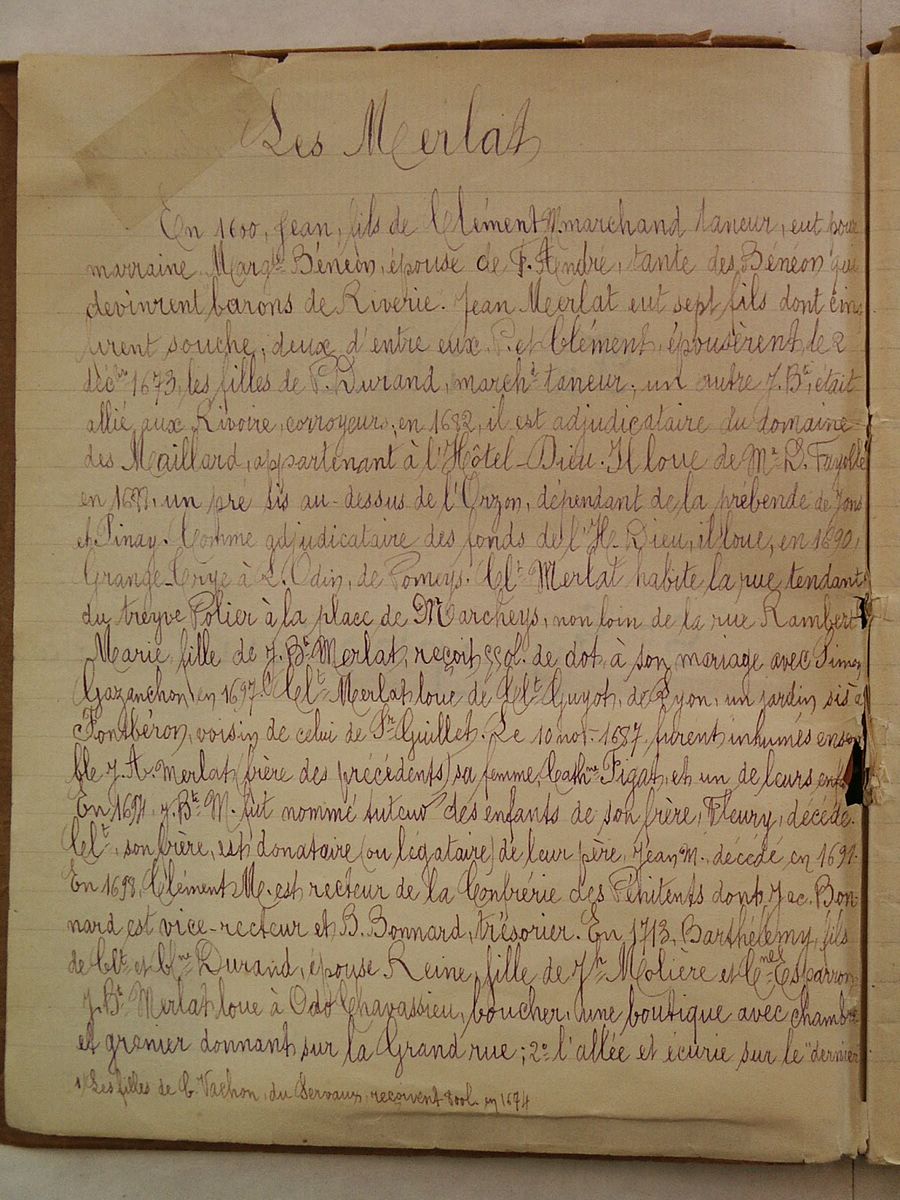 Les Merlat
En 1600, Jean, fils de Clément M. marchand taneur, eut pour
marraine Margte Bénéon, épouse de F. André, tante des Bénéon qui
devinrent barons de Riverie. Jean Merlat eut sept fils dont cinq
firent souche, deux d'entre eux P. et Clément, épousèrent le 2
décbre 1673, les filles de P. Durand, marcht taneur; un autre J. Bte, était
allié aux Rivoire, corroyeurs; en 1682, il est adjudicataire du domaine
des Maillard, appartenant à l'Hôtel-Dieu. Il loue de Mr L. Fayolle
en un pré sis au-dessus de l'Orzon, dépendant de la prébende de Jons
et Pinay. Comme adjudicataire des fonds de l'H. Dieu, il loue, en 1690,
Grange-Crye à L. Odin, de Pomeys. Clt Merlat habite la rue tendant
du treyve Polier à la place de Marcheys, non loin de la rue Rambert
Marie fille de J. Bte Merlat, reçoit 550l. de dot, à son mariage avec Simon
Gazanchon, en 1697. Clt Merlat loue de Clt Guyot, de Lyon, un jardin sis à
Fontbéron, voisin de celui de Pre Guillet. Le 10 nov. 1687 furent inhumés ensem
ble J. A. Merlat (frère des précédents) sa femme, Cathne Pigat, et un de leurs enf
En 1694, J. Bte M. fut nommé tuteur des enfants de son frère, Fleury, décédé.
Clt, son frère, est donataire (ou légataire) de leur père, Jean M., décédé en 1691.
En 1698, Clément M. est recteur de la Confrérie des Pénitents dont Jac. Bon-
nard est vice-recteur et B. Bonnard, trésorier. En 1713, Barthélemy, fils
de Clt et Cne Durand, épouse Reine, fille de Jn Molière et Cne Esparron
J. Bte Merlat loue à Odo Chavassieu, boucher, une boutique avec chambre
et grenier donnant sur la Grand rue; 2° l'allée et écurie sur le "dernier
1) Les filles de C. Vachon, du Servaux, reçoivent 800l. en 1674